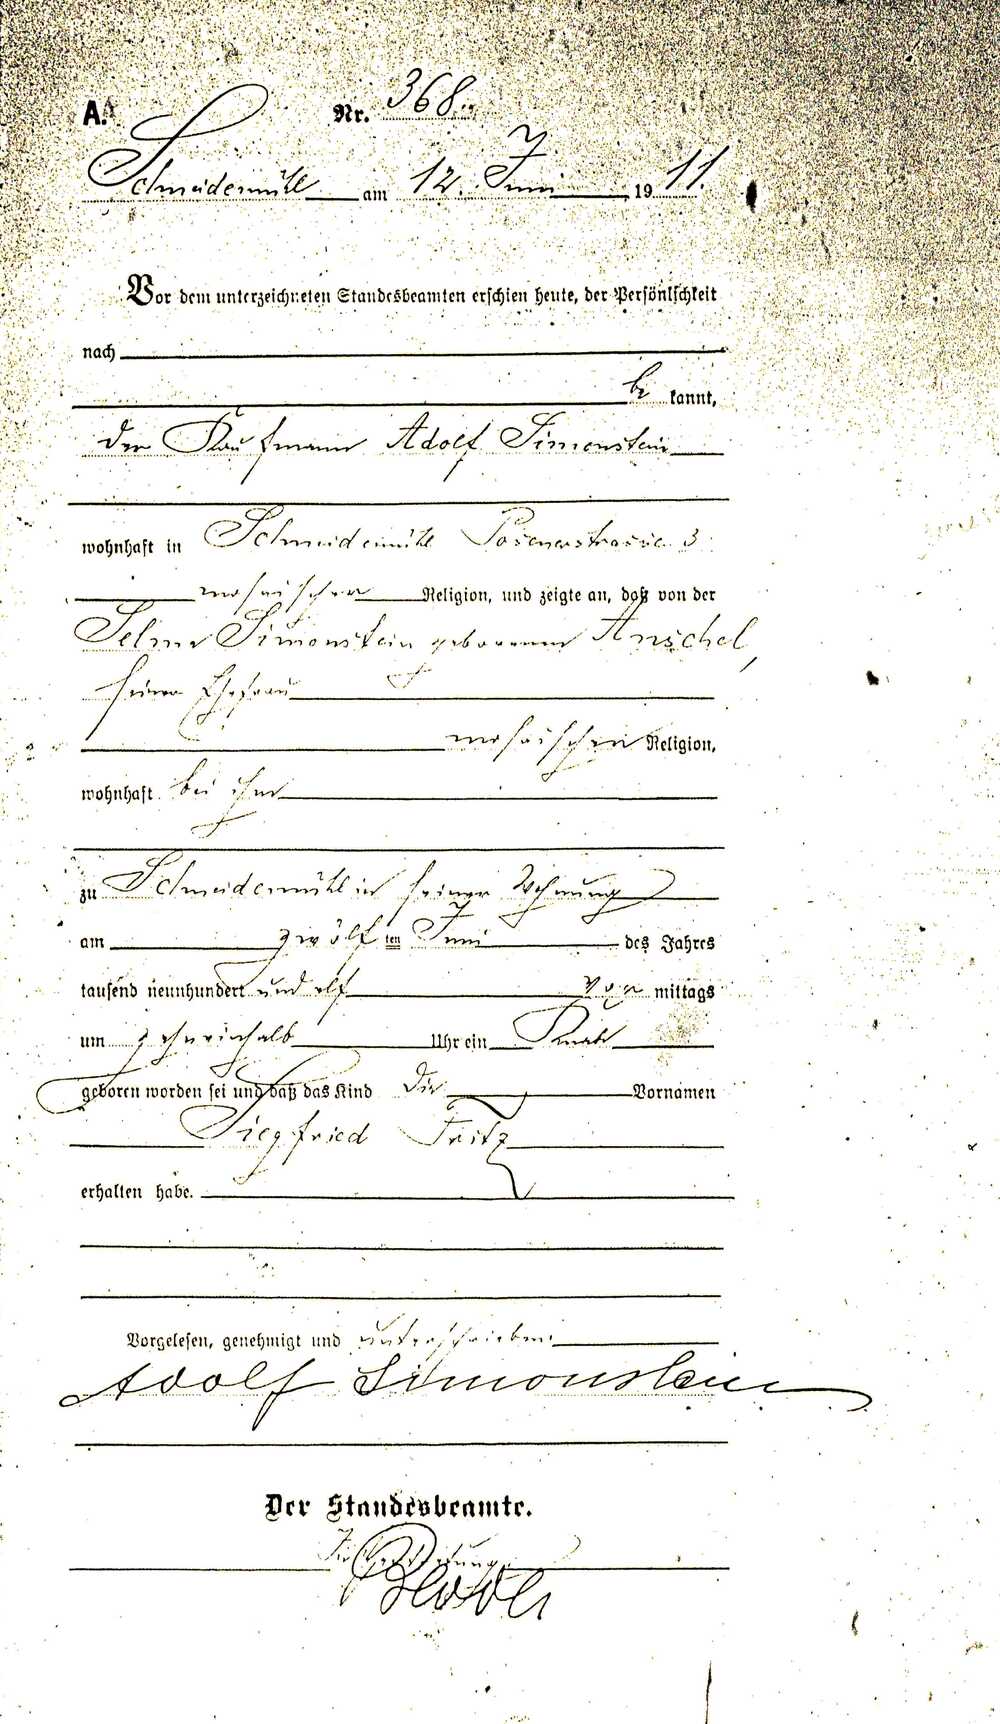 A. Nr. 368.
Schneidemühl am 12. Juni 1911.
Vor dem unterzeichneten Standesbeamten erschien heute, der Persönlichkeit
nach
be kannt,
der Kaufmann Adolf Simonstein
wohnhaft in Schneidemühl Posenerstrasse 3
mosaischer Religion, und zeigte an, daß von der
Selma Simonstein geborenen Anschel,
seiner Ehefrau
mosaischen Religion,
wohnhaft bei ihm
zu Schneidemühl in seiner Wohnung
am zwölf ten Juni des Jahres
tausend neunhundert und elf vor mittags
um zehneinhalb Uhr ein Knabe
geboren worden sei und daß das Kind die Vornamen
Siegfried Fritz
erhalten habe.
Vorgelesen, genehmigt und unterschrieben
Adolf Simonstein
Der Standesbeamte.
In Vertretung